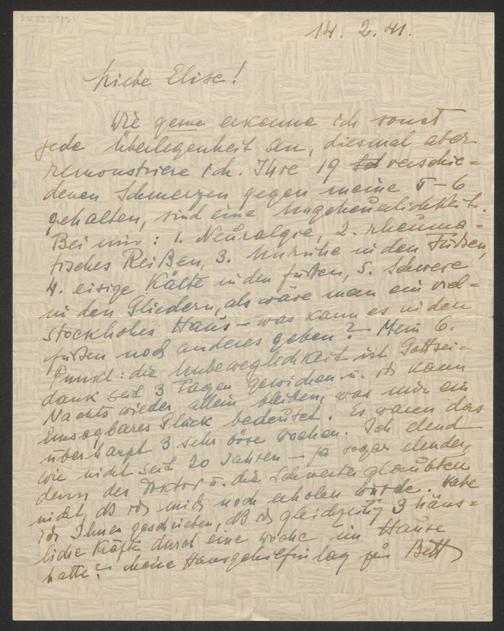 14. 2. 41.
Liebe Elise!
Wie gerne erkenne ich sonst
jede Überlegenheit an, diesmal aber
remonstriere ich. Ihre 19 verschie-
denen Schmerzen gegen meine 5-6
gehalten, sind eine Ungeheuerlichkeit.
Bei mir: 1. Neuralgie, 2. rheuma-
tisches Reißen, 3. Unruhe in den Füßen,
4. eisige Kälte in den Füßen, 5. Schwere
in den Gliedern, als wäre man ein viel-
stockhohes Haus – was kann es in den
Füßen noch anderes geben? – Mein 6.
Punkt: die Unbeweglichkeit ist Gottsei-
dank seit 3 Tagen gewichen u. ich kann
Nachts wieder allein bleiben, was mir ein
unsagbares Glück bedeutet. Es waren das
überhaupt 3 sehr böse Wochen. Ich elend
wie nicht seit 20 Jahren – ja sogar elender,
denn der Doktor u. die Schwester glaubten
nicht, daß ich mich noch erholen würde. Habe
ich Ihnen geschrieben, daß ich gleichzeitig 3 häus-
liche Kräfte durch eine Woche im Hause
hatte? Meine Hausgehilfin lag zu Bett